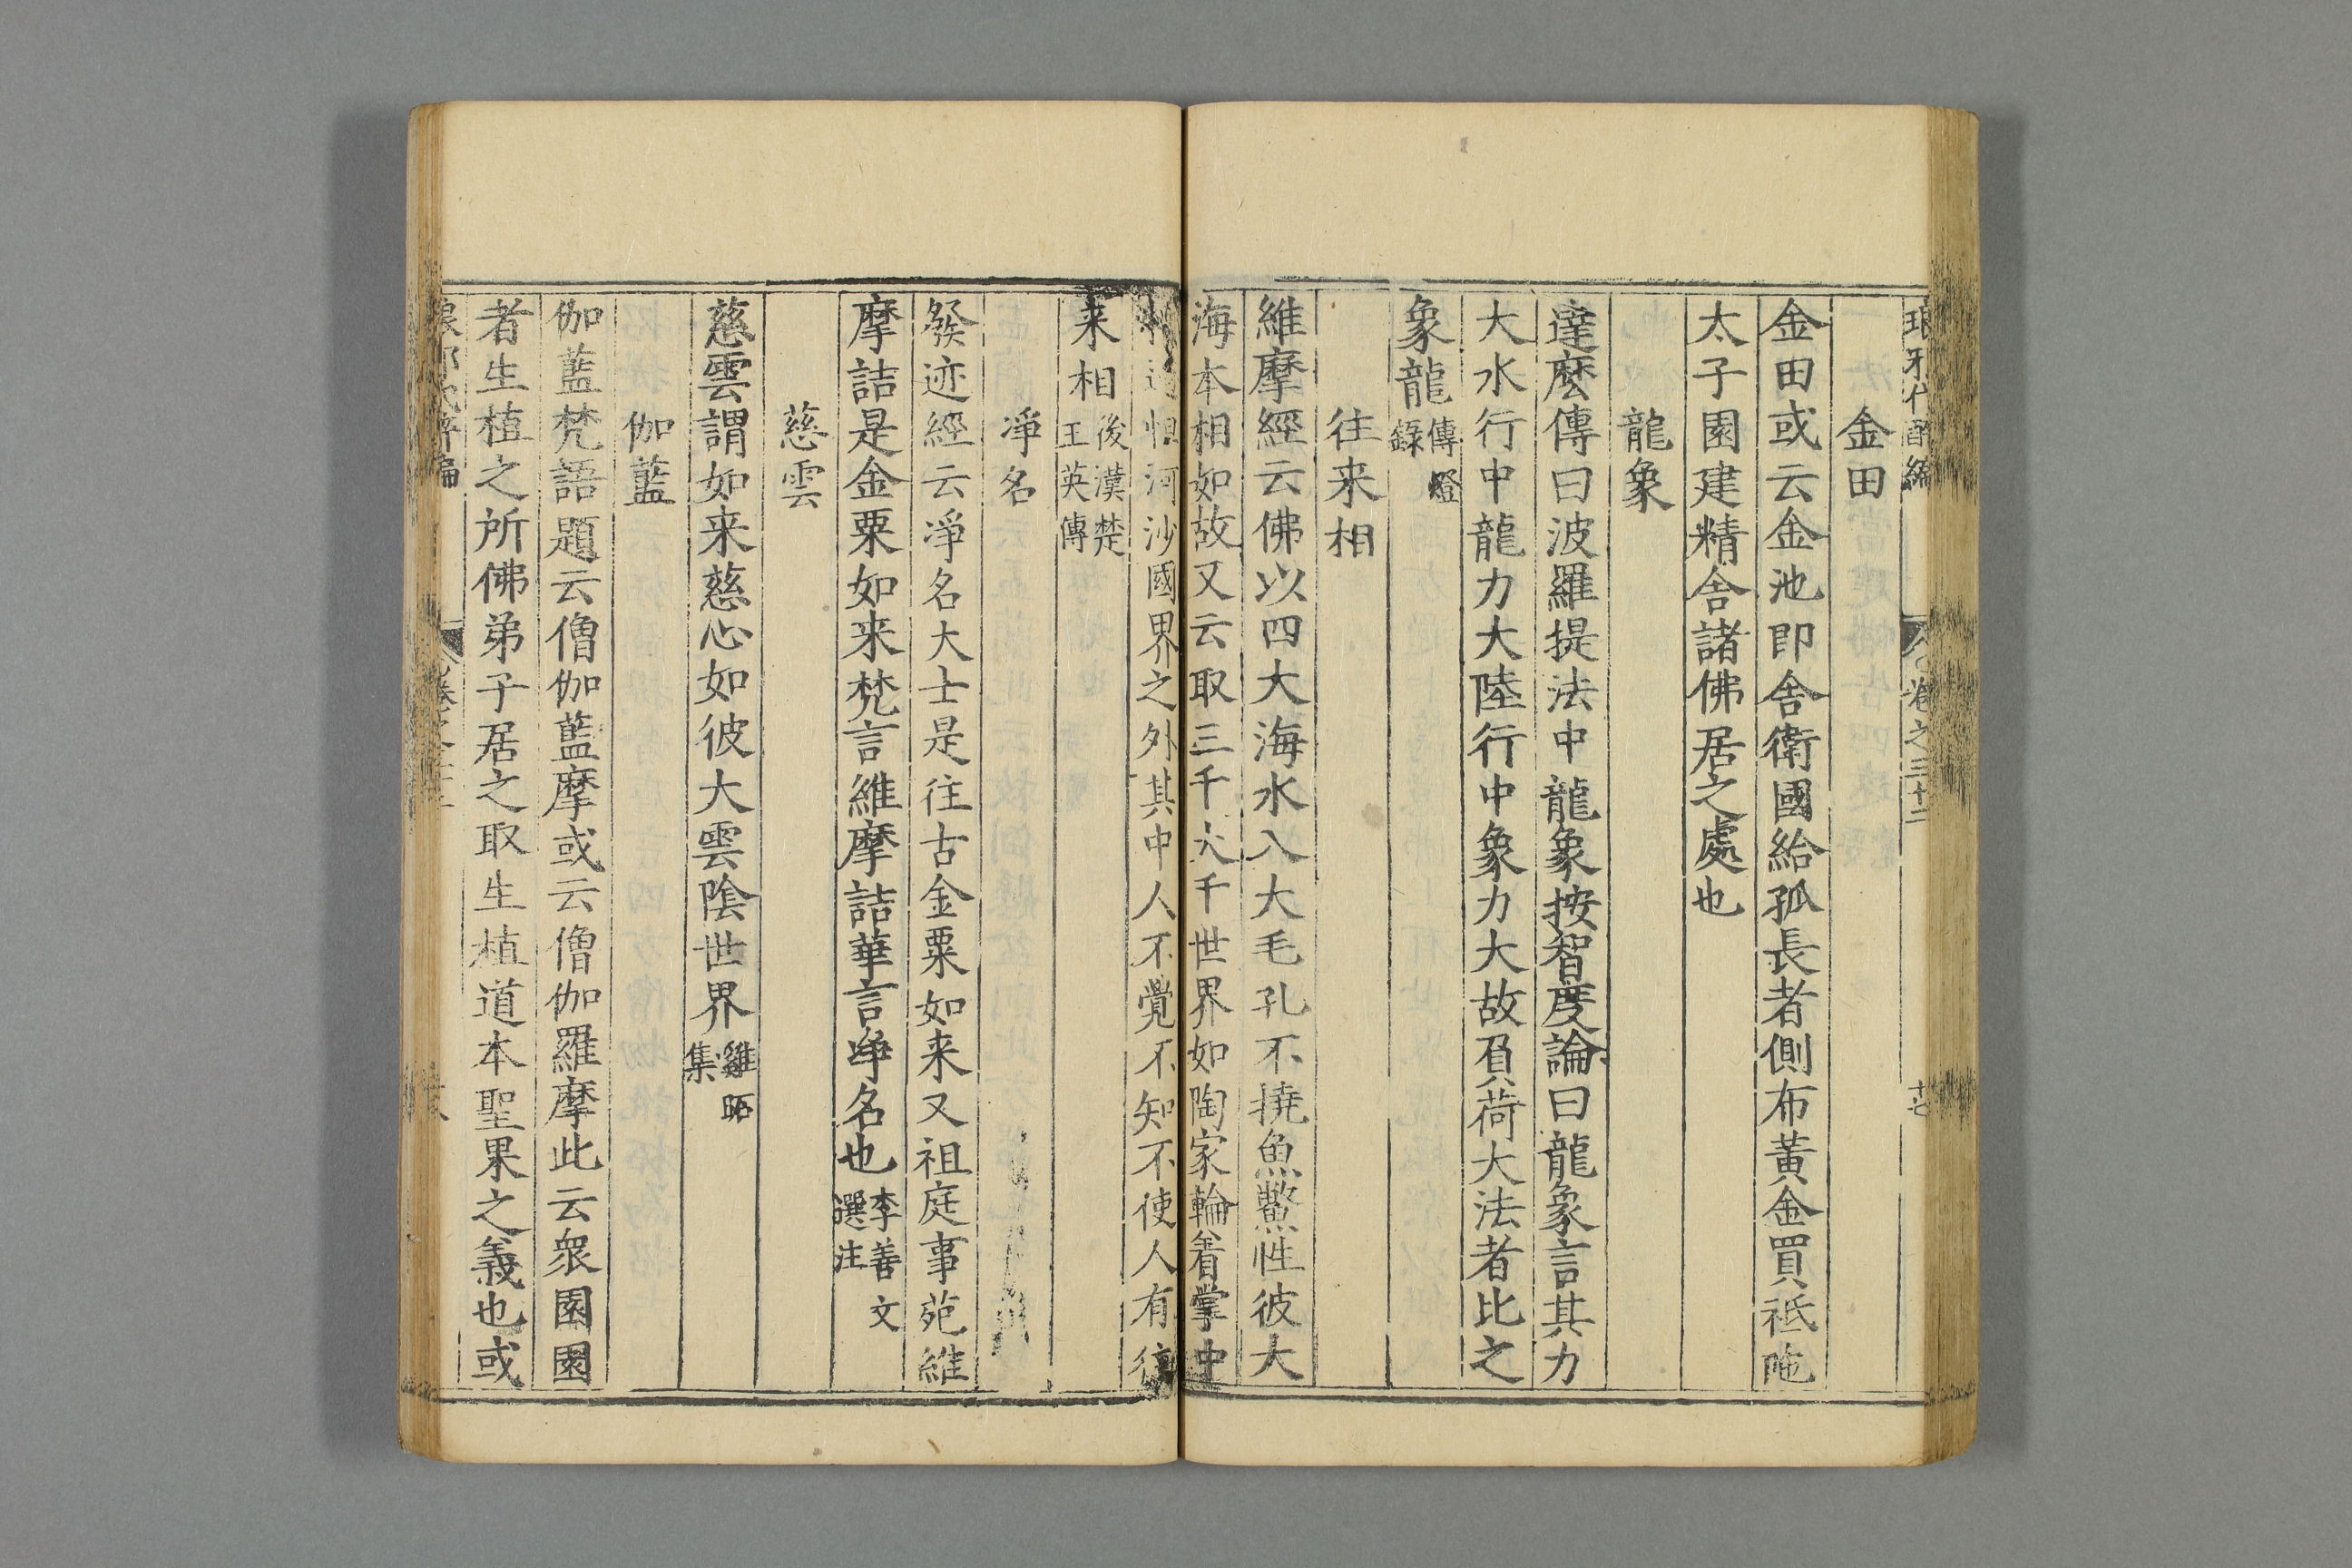 琅邪代醉編 卷之三十二 十七
金田
金田或云金池即舎衛國給孤長者側布黃金買祗陁
太子園建精舎諸佛居之處也
龍象
達麽傳曰波羅提法中龍象按智度論曰龍象言其力
大水行中龍力大陸行中象力大故負荷大法者比之
象龍傳燈錄
往来相
維摩經云佛以四大海水入大毛孔不撓魚鱉性彼大
海本相如故又云取三千大千世界如陶家輪着掌中
過恒河沙國界之外其中人不覺不知不使人有往
来相後漢楚王英傳
淨名
發迹經云淨名大士是往古金粟如来又祖庭事苑維
摩詰是金粟如来梵言維摩詰華言淨名也李善文選注
慈雲
慈雲謂如来慈心如彼大雲陰世界雞跖集
伽藍
伽藍梵語題云僧伽藍摩或云僧伽羅摩此云衆園園
者生植之所佛弟子居之取生植道本聖果之義也或